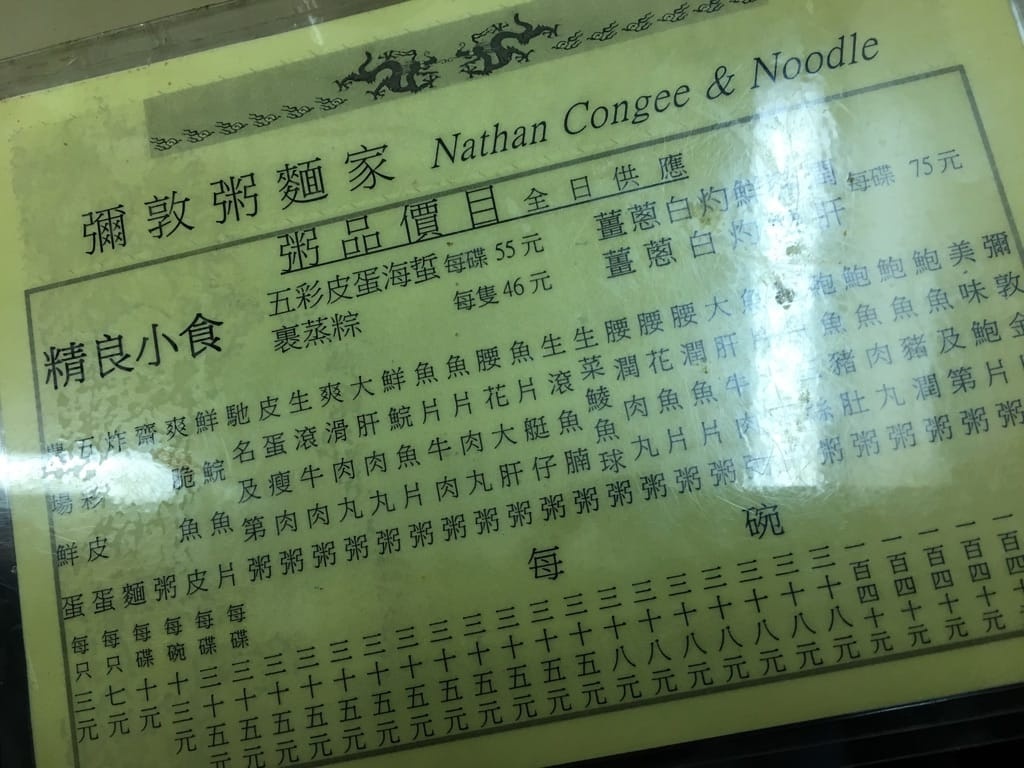 彌敦粥麵家 Nathan Congee & Noodle
粥品價目 全日供應
精良小食
五彩皮蛋海蜇 每碟 55 元
裹蒸粽 每隻 46 元
薑蔥白灼鮮 每碟 75 元
薑蔥白灼 肝
每碗
彌敦金
美味鮑片粥 一百四十元
鮑魚及第粥 一百四十元
鮑魚豬潤粥 一百四十元
鮑魚肉丸粥 一百四十元
鮑魚豬肚粥 一百四十元
大肝牛肉粥 三十八元
腰潤魚片粥 三十八元
腰花魚片粥 三十八元
腰潤肉丸粥 三十八元
生菜鯪魚球粥 三十八元
生滾魚腩粥 三十五元
魚片艇仔粥 三十五元
腰花大肝粥 三十五元
魚片肉丸粥 三十五元
魚片牛肉粥 三十五元
鮮鯇魚片粥 三十五元
大肝肉丸粥 三十五元
爽滑肉丸粥 三十五元
生滾牛肉粥 三十五元
皮蛋瘦肉粥 三十五元
馳名及第粥 三十五元
鮮鯇魚片 每碟三十五元
爽脆魚皮 每碟三十五元
齋粥 每碗十三元
炸麵 每碟十元
五彩皮蛋 每只七元
農場鮮蛋 每只三元